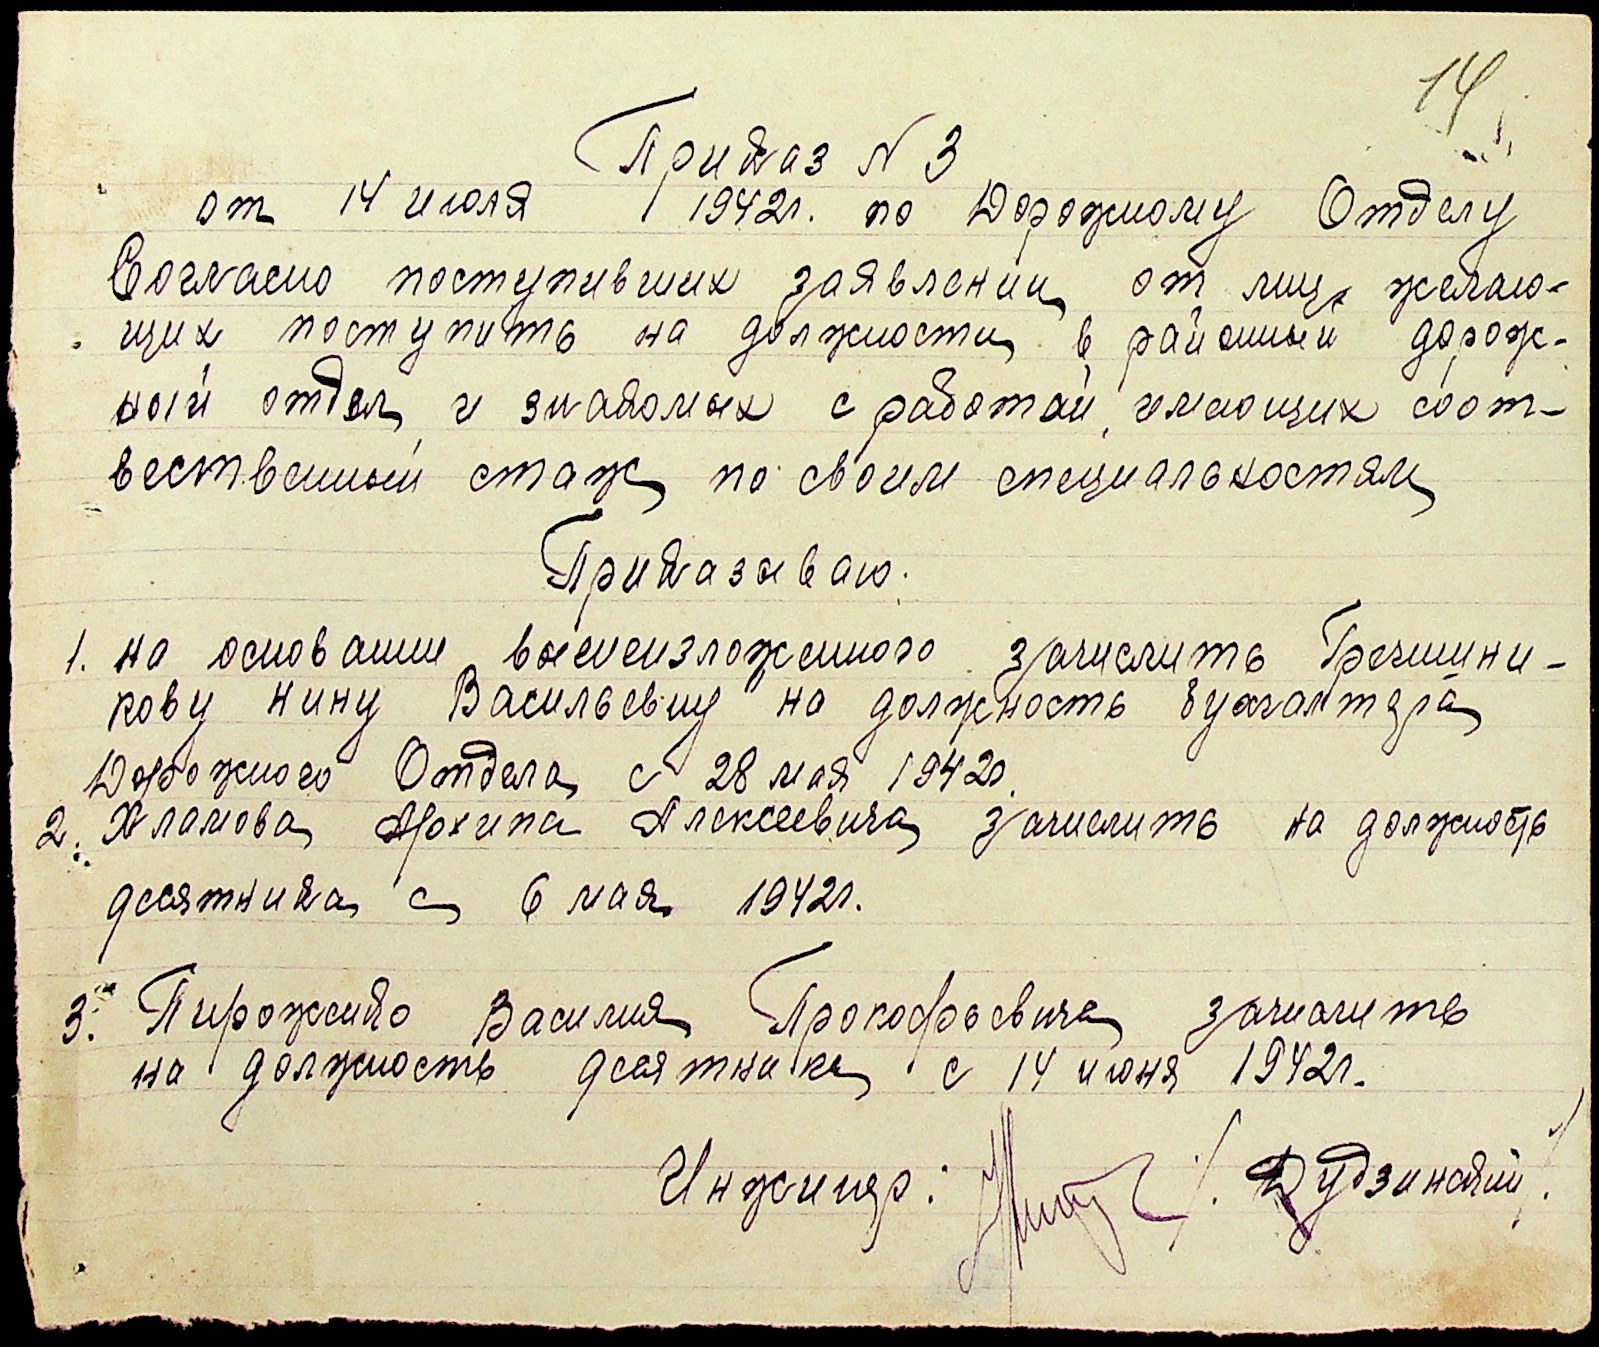 14
Приказ N 3
от 14 июля 1942г. по Дорожному Отделу
Согласно поступивших заявлений от лиц, желаю-
щих поступить на должности в районный дорож-
ный отдел и знакомых с работай, имеющих соот-
вественный стаж по своим специальностям
Приказываю.
1. на основании вышеизложенного зачислить Гречишни-
кову Нину Васильевну на должность бухгалтера
Дорожного Отдела с 28 мая 1942г.
2. Хламова Архипа Алексеевича зачислить на должность
десятника с 6 мая 1942г.
3. Пирожко Василия Прокофьевича зачислить
на должность десятника с 14 июня 1942г.
Инжинер: /. Дудзинский /.